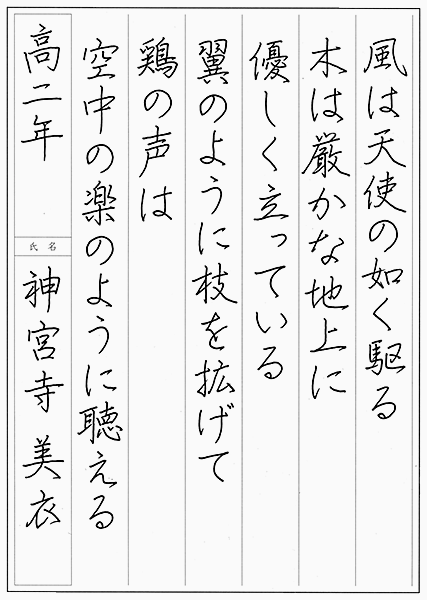 風は天使の如く駆る
木は厳かな地上に
優しく立っている
翼のように枝を拡げて
鶏の声は
空中の楽のように聴える
高二年
氏名
神宮寺 美衣